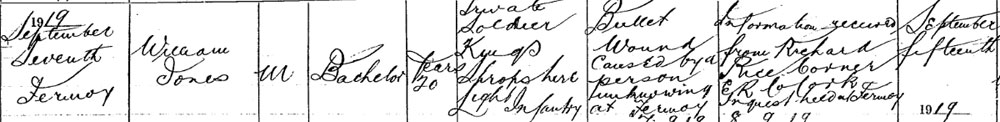 1919
September
Seventh
Fermoy
William
Jones
M
Bachelor
Years
20
Private
Soldier
Kings
Shropshire
Light Infantry
Bullet
Wound
caused by a
person
unknowing
at Fermoy
Information received
from Richard
Rice Coroner
E R Co Cork
Inquest held at Fermoy
8 9 19
September
fifteenth
1919